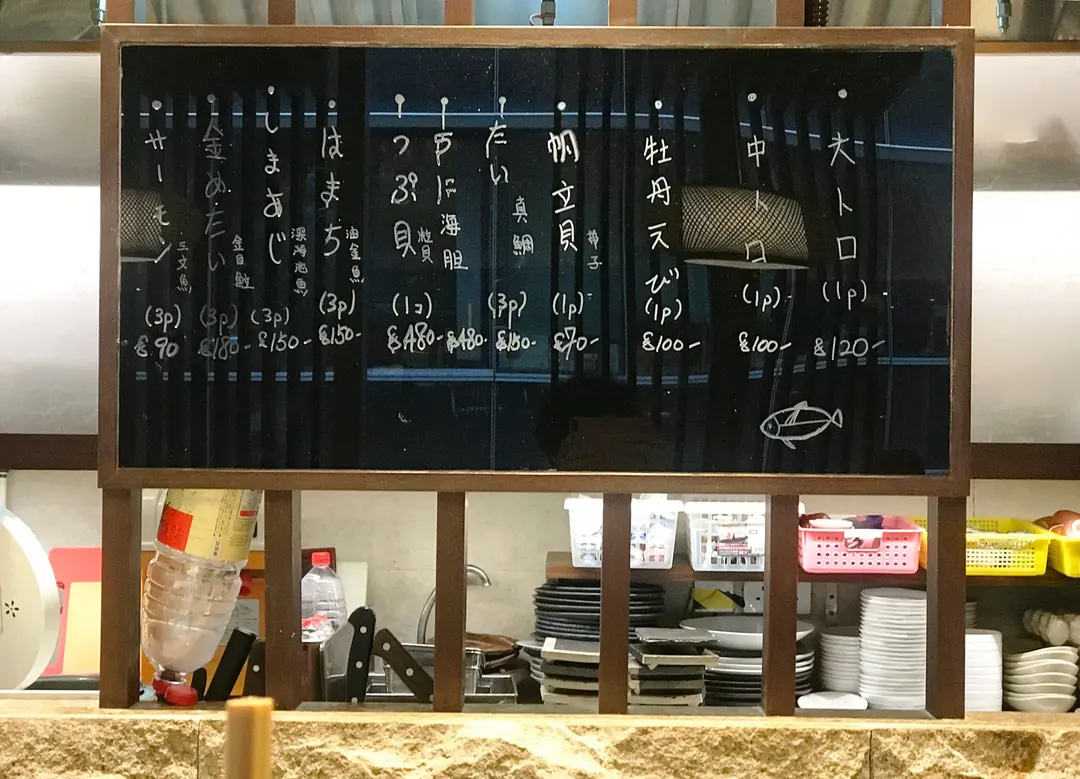 大トロ
(1p)-
$120-
中トロ
(1p)-
$100-
牡丹えび
(1p)
$100-
帆立貝
帶子
(1p)-
$70-
たい
真鯛
(3p)
$150-
海胆
$480-
つぷ貝
粒貝
(1コ)
$480-
はまち
油金魚
(3p)
$150-
しまあじ
深海池魚
(3p)
$150-
金めたい
金目鯛
(3p)
$180-
サーモン
三文魚
(3p)
$90